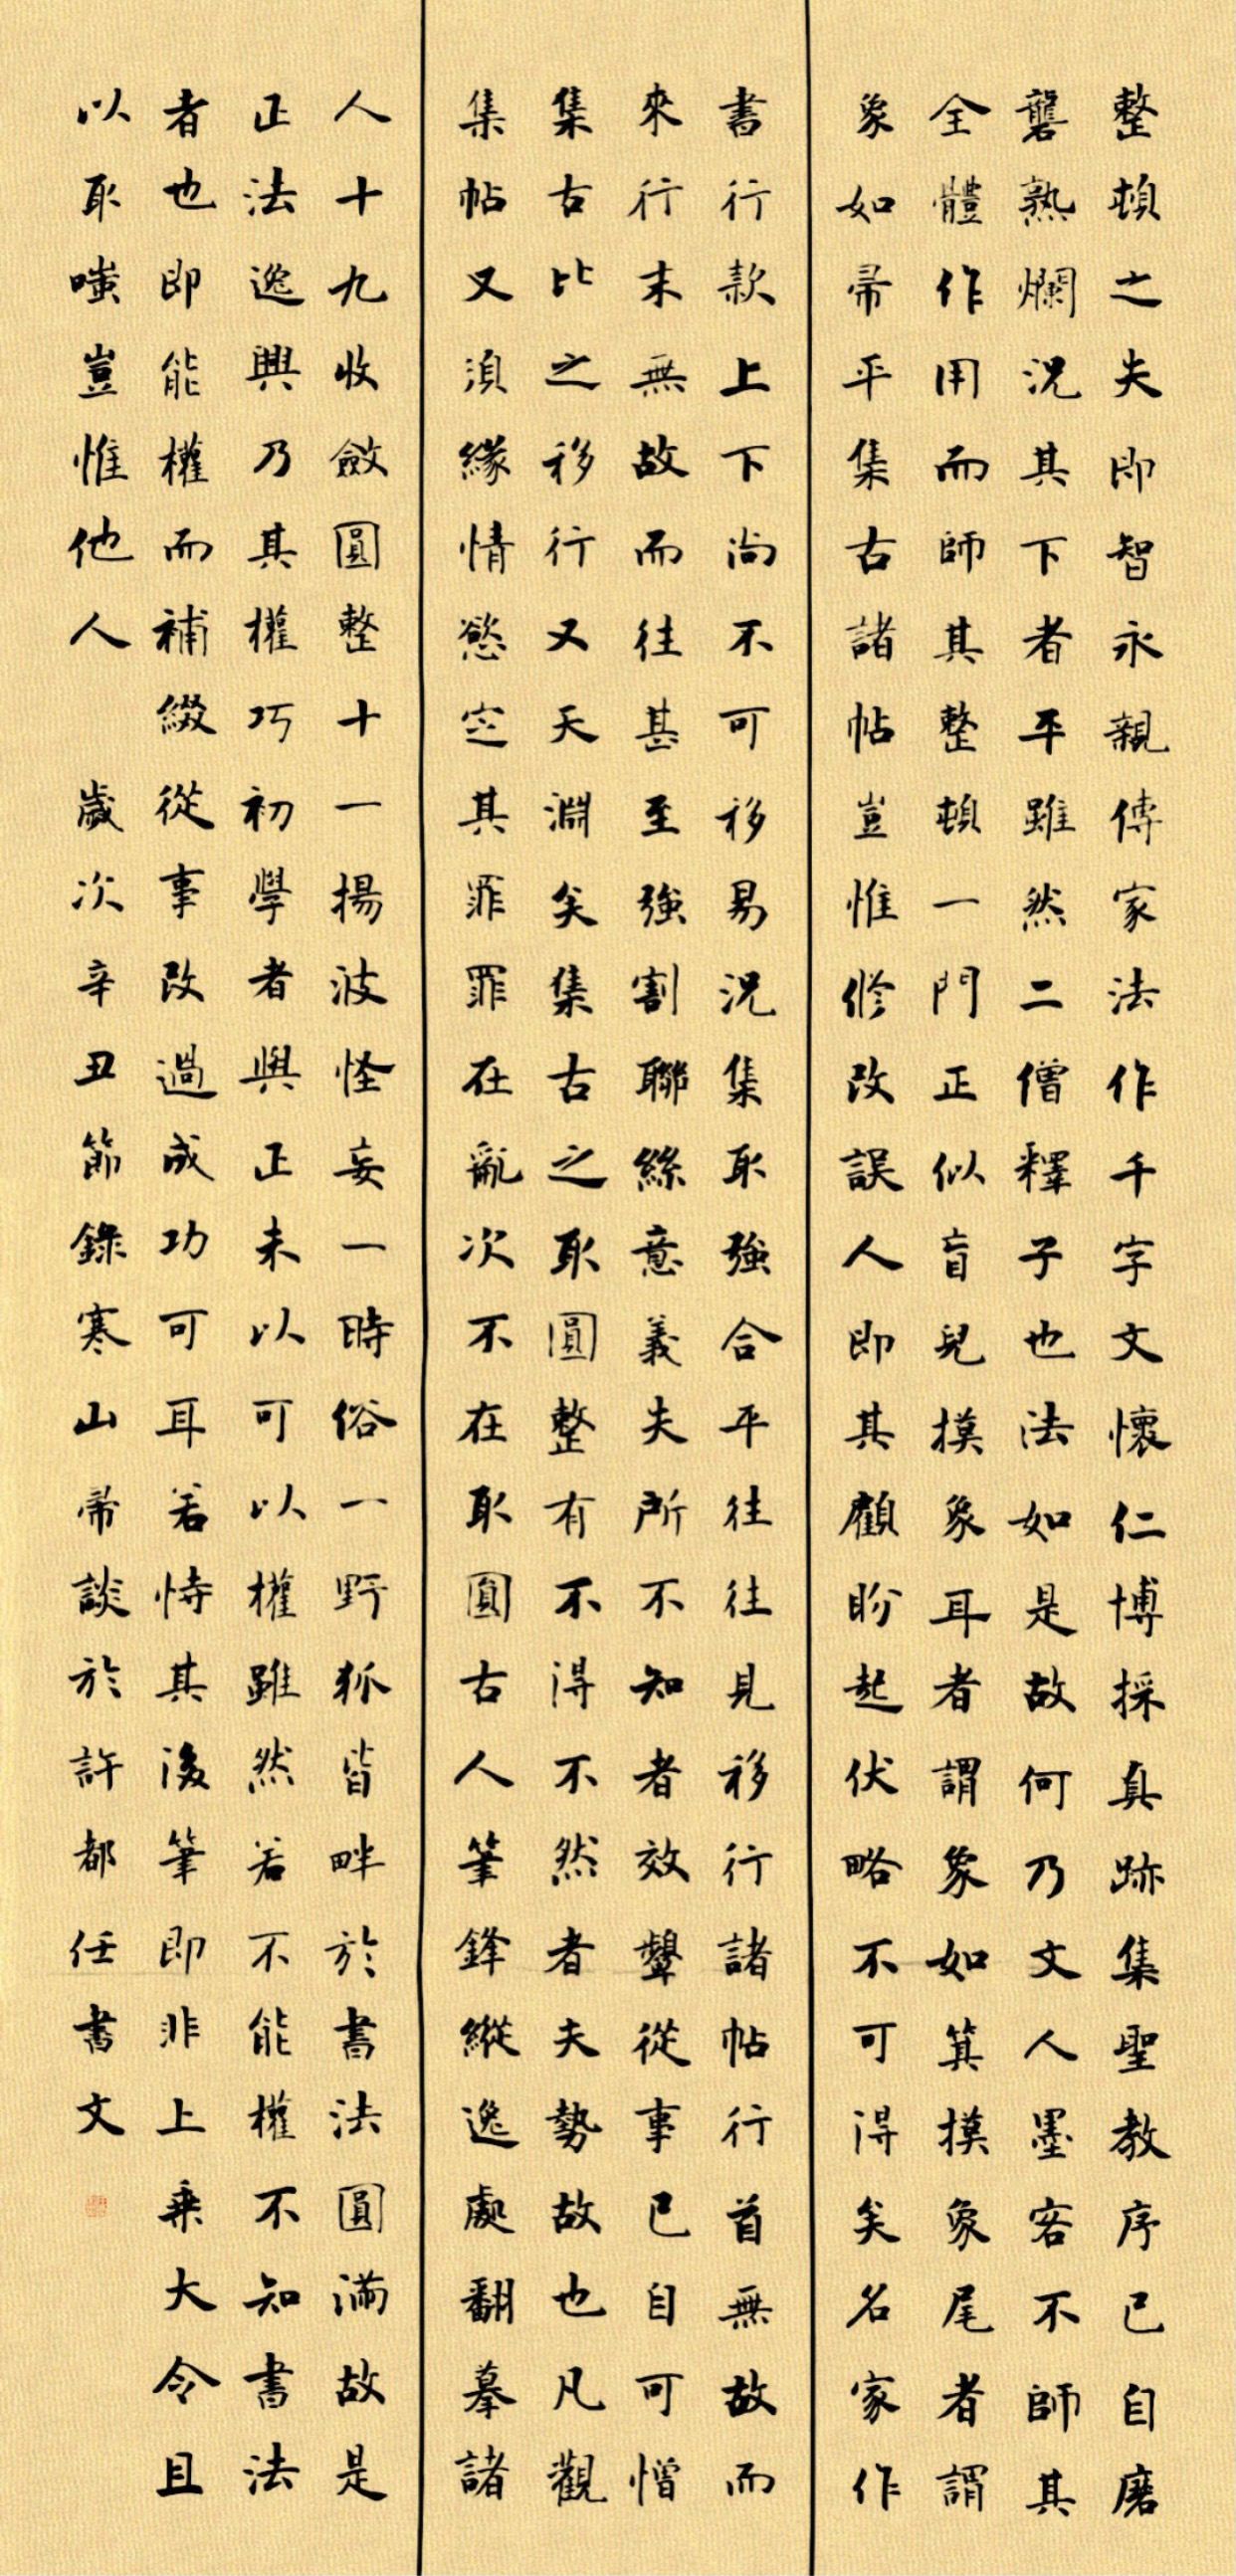 整頓之失即智永親傳家法作千字文懷仁博採真跡集聖教序已自磨
礱熟爛況其下者平雖然二僧釋子也法如是故何乃文人墨客不師其
全體作用而師其整頓一門正似盲兒摸象耳者謂象如箕摸象尾者謂
象如帚平集古諸帖豈惟修改誤人即其顧盼起伏略不可得矣名家作
書行款上下尚不可移易況集取強合平往往見移行諸帖行首無故而
來行末無故而往甚至強割聯絲意義夫所不知者效顰從事已自可憎
集古比之移行又天淵矣集古之取圓整有不得不然者夫勢故也凡觀
集帖又須緣情慾定其罪罪在亂次不在取圓古人筆鋒縱逸處翻摹諸
人十九收斂圓整十一揚波怪妄一時俗一野狐皆畔於書法圓滿故是
正法逸興乃其權巧初學者與正未以可以權雖然若不能權不知書法
者也即能權而補綴從事改過成功可耳若恃其後筆即非上乘大令且
以取嗤豈惟他人 歲次辛丑節錄寒山帚談於許都任書文